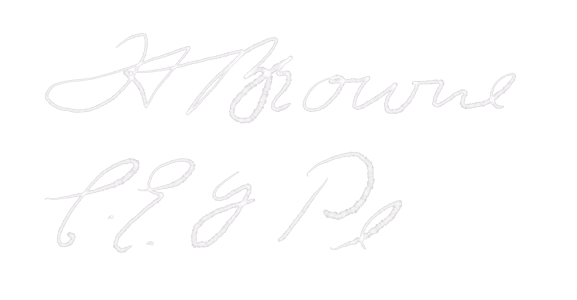 H Browne
C. E. G Pe